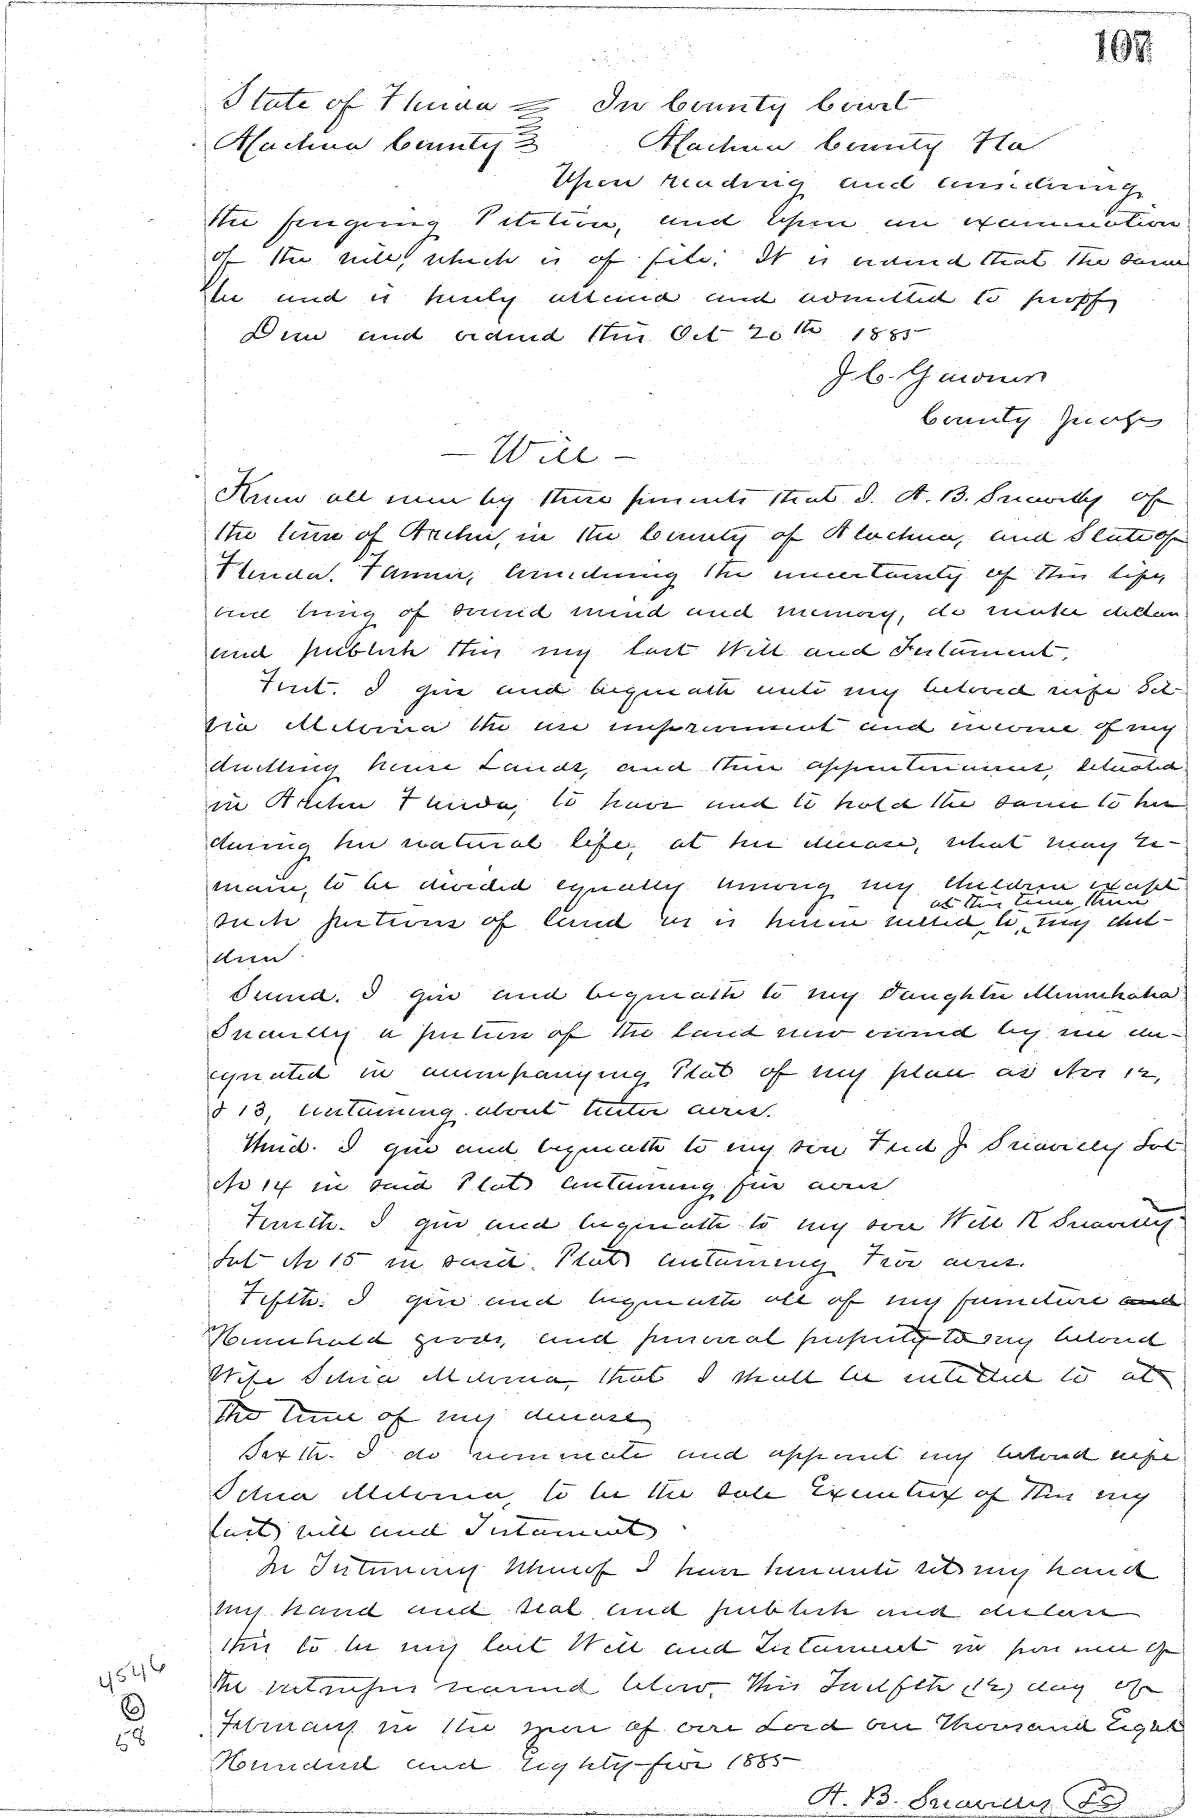 107
State of Florida In County Court
Alachua County Alachua County Fla
Upon reading and considering
the foregoing Petition, and upon an examination
of the will, which is of file. It is ordered that the same
be and is hereby allowed and admitted to proff,
Done and ordered this Oct 20th 1885
J. C. Gardner
County Judge
- Will -
Know all men by these presents that I. A. B. of
the town of Archer, in the County of Alachua, and State of
Florida. Farmer, considering the uncertainty of this life,
and being of sound mind and memory, do make declare
and publish this my last Will and Testament.
First. I give and bequeath unto my beloved wife Sil-
via Melvina the use improvement and income of my
dwelling house Lands, and their appurtenances, situated
in Archer Florida, to have and to hold the same to her
during her natural life, at her decease, what may re-
main, to be divided equally among my children except
at this time
such portions of land as is herein willed to, my chil-
dren.
Second. I give and bequeath to my Daughter Minnehaha
a portion of the land now owned by me de-
signated in accompanying Plat of my place as Nos 12,
& 13, containing about acres.
Third. I give and bequeath to my son Fred J Lot
No 14 in said Plat containing five acres
Fourth. I give and bequeath to my son Will R
Lot No 15 in said Plat containing Five acres.
Fifth: I give and bequeath all of my furniture and
Household goods, and personal property to my beloved
Wife Silvia Melvina, that I shall be entitled to at
the time of my decease,
Sixth. I do nominate and appoint my beloved wife
Silvia Melvina, to be the sole Executrix of this my
last will and Testament.
In Testimony Whereof I have hereunto set my hand
my hand and seal and publish and declare
this to be my last Will and Testament in presence of
the witnesses named below, This Twelfth (12) day of
February in the year of our Lord one Thousand Eight
Hundred and Eighty-five 1885
4546
6
58
A. B. LS